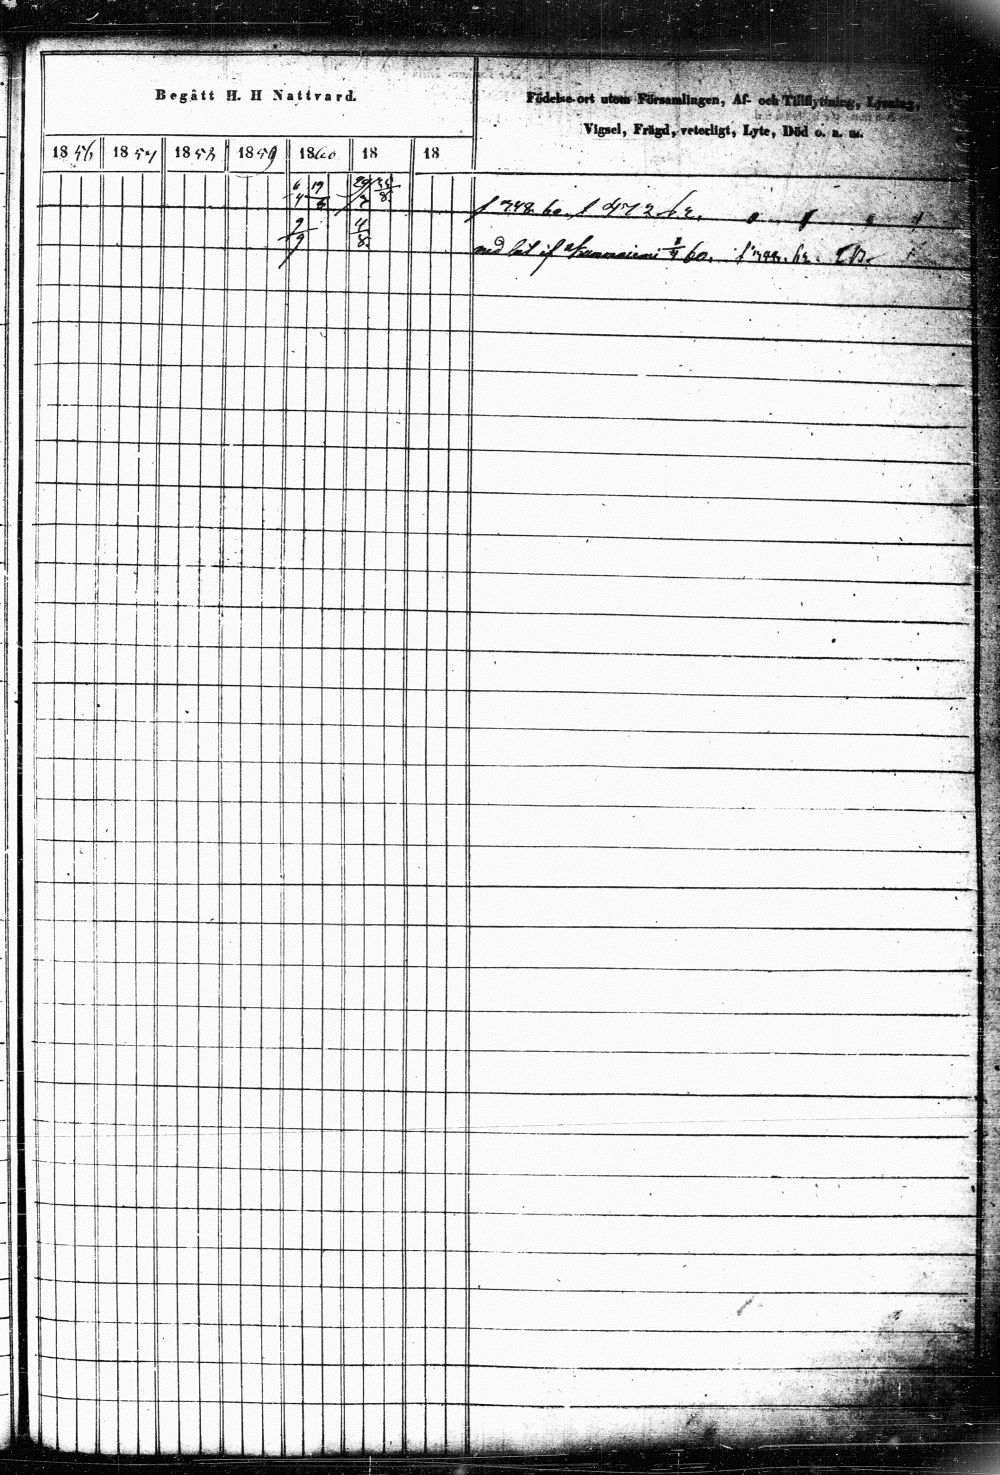 Begått H. H Nattvard.
Födelse-ort utom Församlingen, Af- och Tillflyttning, Lysning,
Vigsel, Frägd, veterligt, Lyte, Död o. a. m.
1856 1857 1858 1859 1860 18 18
6/4 19/8 29/7 25/8
f 748. 60. f 472 62.
9/9 4/8
med bet if 60. f 62.